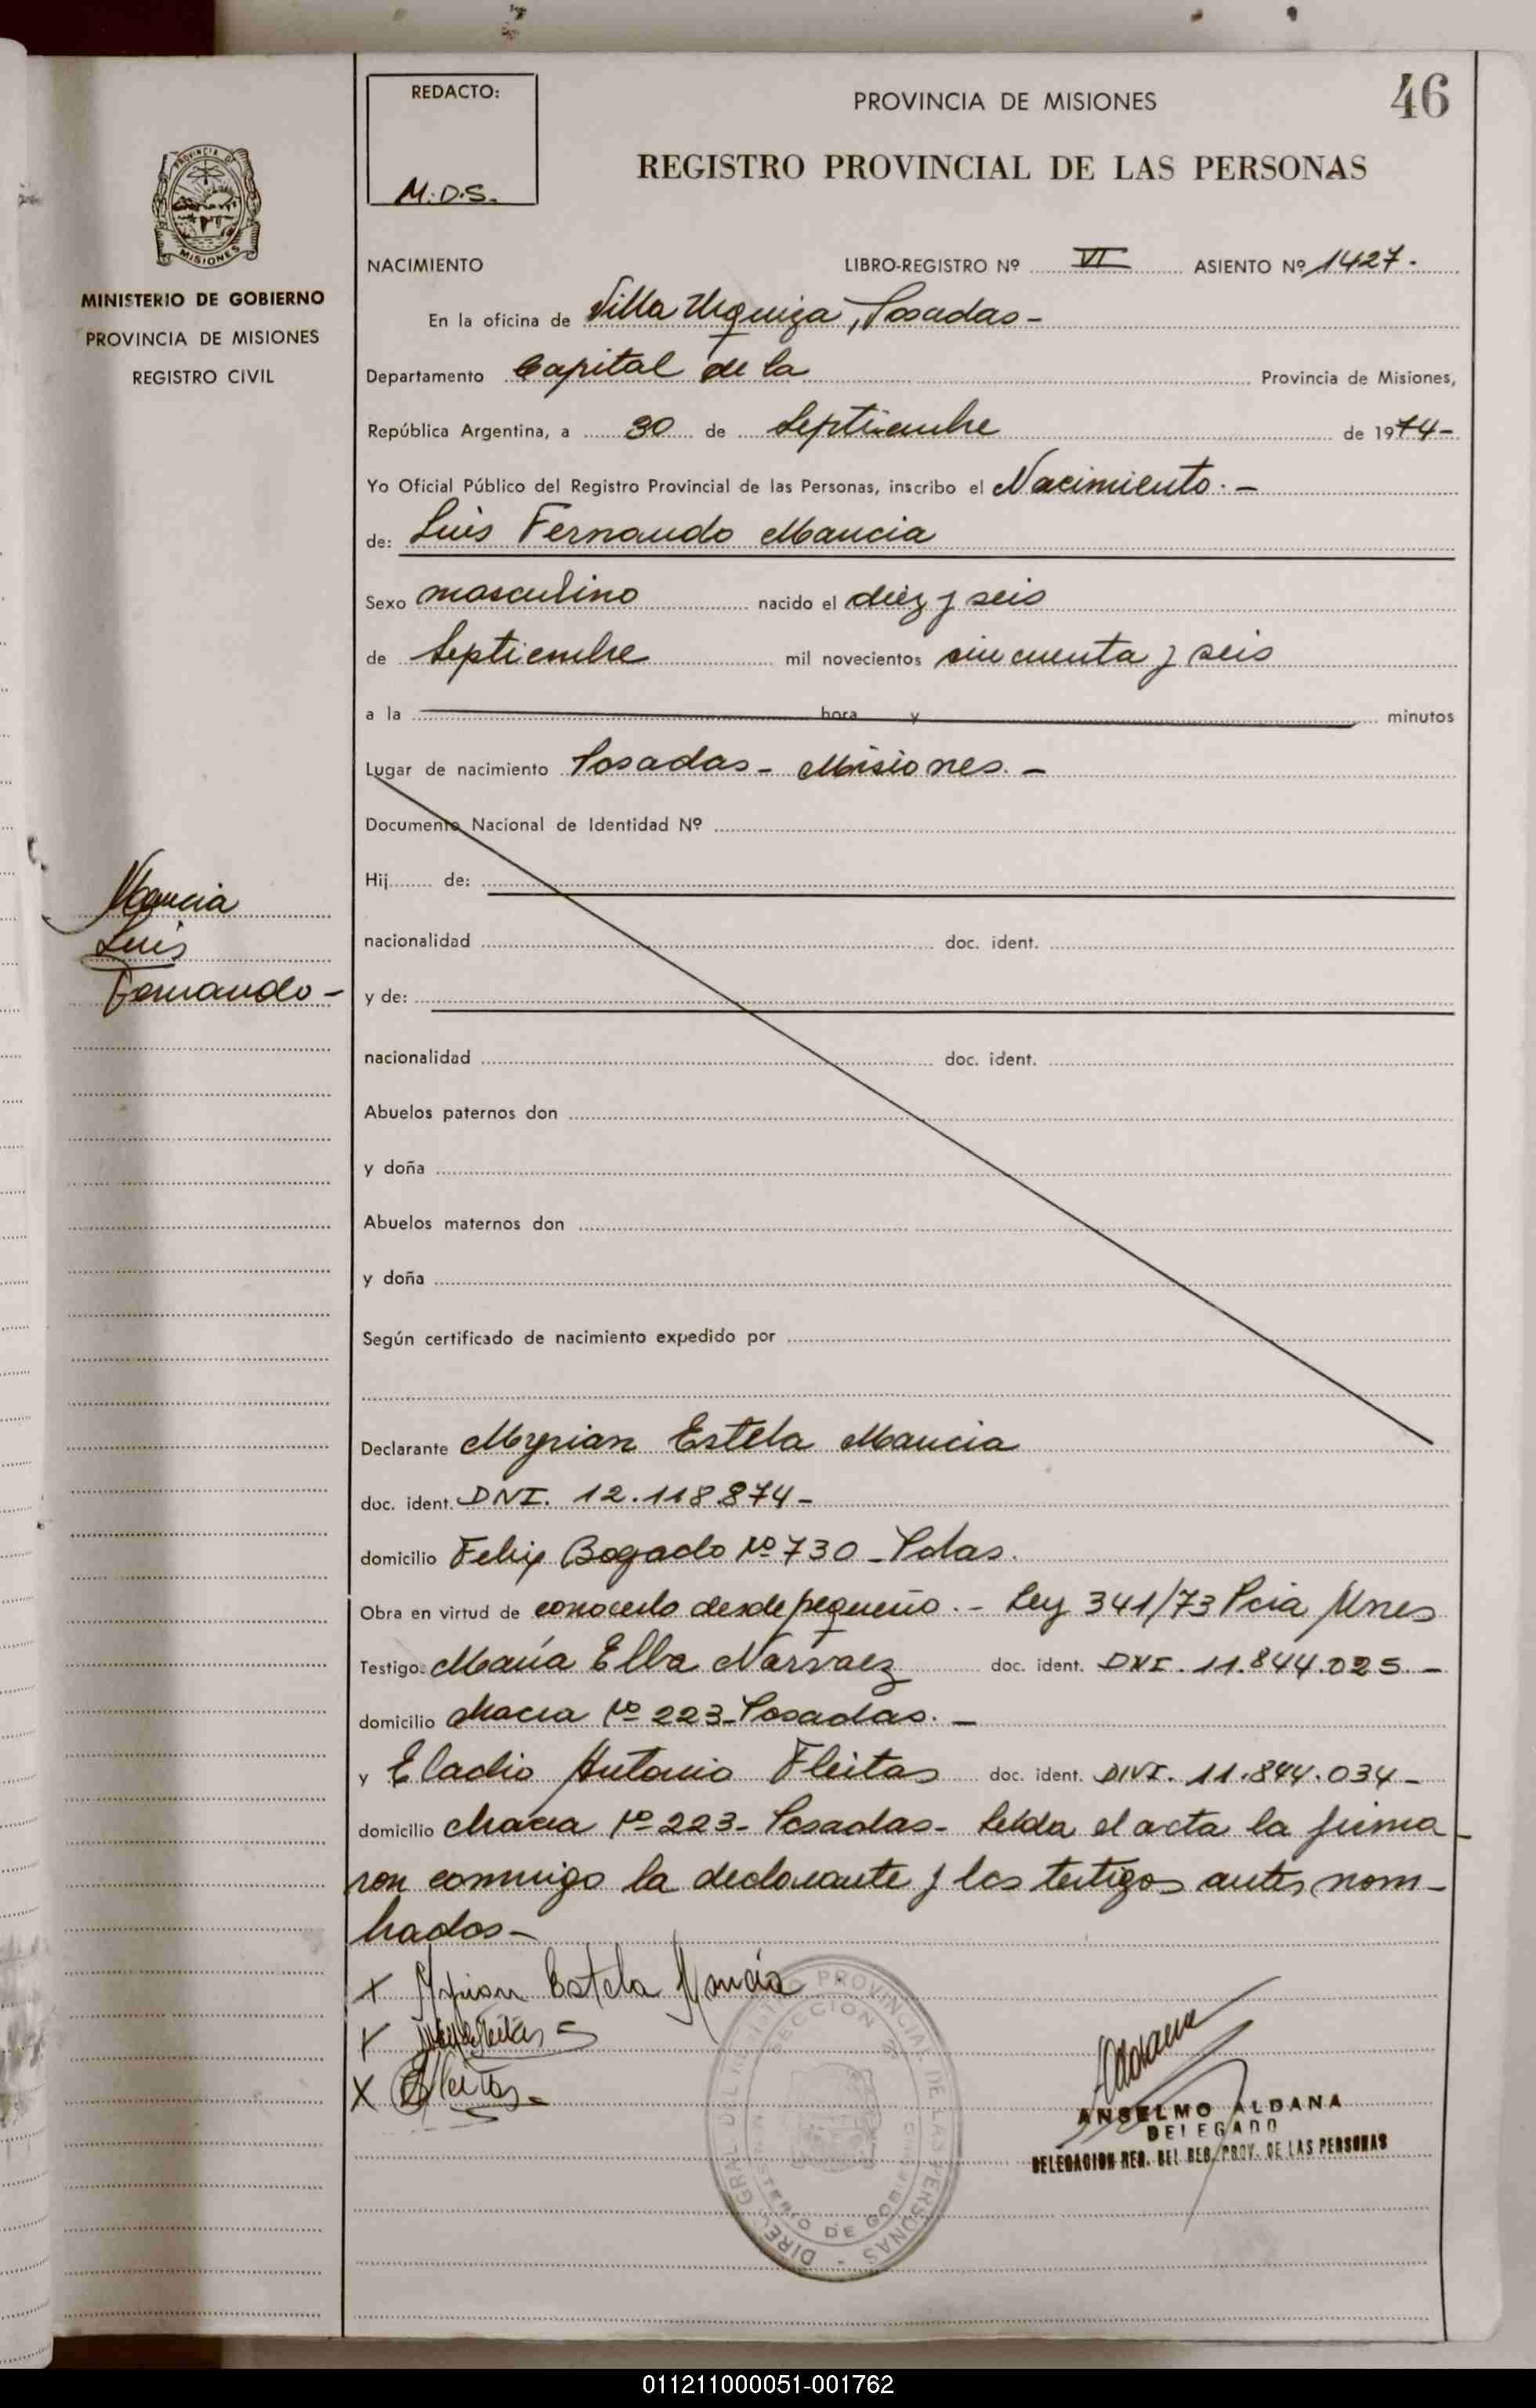 46
REDACTO:
M.D.S.
PROVINCIA DE MISIONES
REGISTRO PROVINCIAL DE LAS PERSONAS
PROVINCIA DE
MISIONES
MINISTERIO DE GOBIERNO
PROVINCIA DE MISIONES
REGISTRO CIVIL
Mancia
Luis
Fernando -
NACIMIENTO LIBRO-REGISTRO Nº VI ASIENTO Nº 1427.
En la oficina de Villa Urquiza, Posadas -
Departamento Capital de la Provincia de Misiones,
República Argentina, a 30 de Septiembre de 1974-
Yo Oficial Público del Registro Provincial de las Personas, inscribo el Nacimiento. -
de: Luis Fernando Mancia
Sexo masculino nacido el diez y seis
de Septiembre mil novecientos cincuenta y seis
a la hora y minutos
Lugar de nacimiento Posadas - Misiones. -
Documento Nacional de Identidad Nº
Hij de:
nacionalidad doc. ident.
y de:
nacionalidad doc. ident.
Abuelos paternos don
y doña
Abuelos maternos don
y doña
Según certificado de nacimiento expedido por
Declarante Myrian Estela Mancia
doc. ident. DNI. 12.118.874-
domicilio Felix Bogado Nº 730 - Pdas.
Obra en virtud de conocerlo desde pequeño. - Ley 341/73 Pcia Mnes
Testigo: María Elba Narvaez doc. ident. DNI. 11.844.025. -
domicilio chacra Nº 223 - Posadas. -
y Eladio Antonio Fleitas doc. ident. DNI. 11.844.034 -
domicilio chacra Nº 223 - Posadas - Leída el acta la firma-
ron conmigo la declarante y los testigos antes nom-
brados -
X Myrian Estela Mancia
X
X Fleitas
DIREC. GRAL. DEL REGISTRO PROVINCIAL DE LAS PERSONAS -
SECCION
MINISTERIO DE GOBIERNO
Aldana
ANSELMO ALDANA
DELEGADO
DELEGACION REG. DEL REG. PROV. DE LAS PERSONAS
011211000051-001762